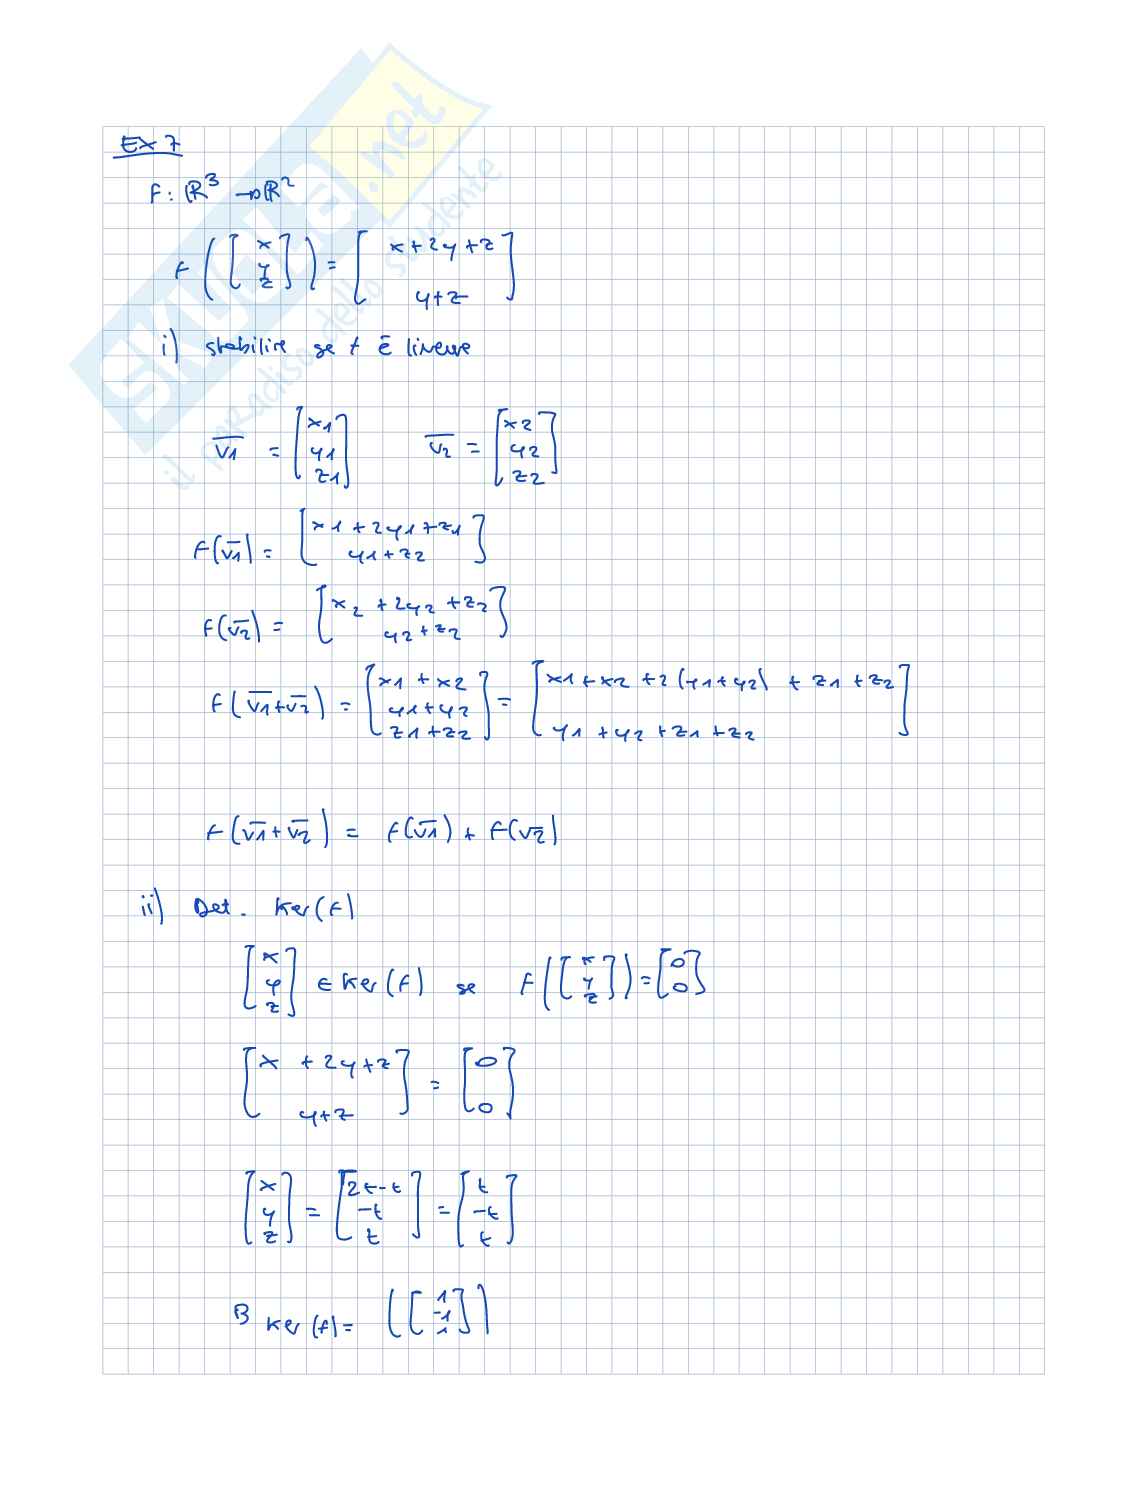 SKUOLA.net
il paradiso dello studente
Ex 7
F: ℝ³ → ℝ²
F([x y z]) = [x+2y+z
y+z]
i) stabilire se f è lineare
v1 = [x1 y1 z1] v2 = [x2 y2 z2]
F(v1) = [x1+2y1+z1
y1+z2]
F(v2) = [x2+2y2+z2
y2+z2]
F(v1+v2) = [x1+x2 y1+y2 z1+z2] = [x1+x2+2(y1+y2)+z1+z2
y1+y2+z1+z2]
F(v1+v2) = F(v1) + F(v2)
ii) Det. Ker(F)
[x y z] ∈ Ker(F) se F([x y z]) = [0 0]
[x+2y+z
y+z] = [0 0]
[x y z] = [2t-t -t t] = [t -t t]
B Ker(f) = ([1 -1 1])